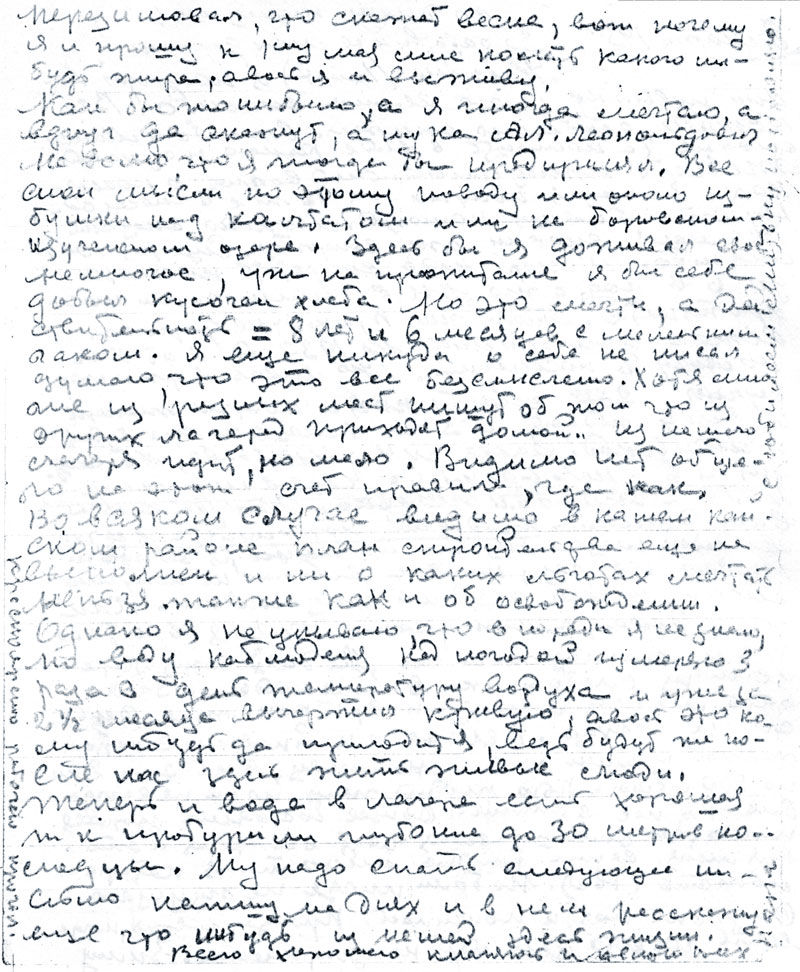 перезимовал, что скажет весна, вот почему
я и прошу к 1му мая мне послать какого ни-
будь жира, авось я и выживу.
Как бы то ни было, а я иногда мечтаю, а
вдруг да скажут, а ну ка Ал. Леопольдович
не домой что я тогда бы
мои мысли по этому поводу или около из-
бушки над или на боровском
изученном озере. Здесь бы я доживал своё
немногое, уж на пропитание я бы себе
добыл кусочек хлеба. Но это мечты, а дей-
ствительность = 8 лет и 6 месяцев с маленьким
гаком. Я еще никуда о себе не писал
думаю, что это все безсмыслено. Хотя мно-
гие из разных мест пишут об том что из
других лагерей приходят "домой". из нашего
лагеря идут, но мало. Видимо нет обще-
го на этот счет правила, где как.
Во всяком случае видимо в нашем кан-
ском районе план строительства еще не
выполнен и ни о каких льготах мечтать
нельзя также как и об освобождении.
Однако я не унываю, что впереди я не знаю,
но веду наблюдения над погодой измеряю 3
раза в день температуру воздуха и уже за
2½ месяца вычертил кривую, авось это ко-
му нибудь да пригодится, ведь будут же по-
сле нас здесь жить живые люди.
Теперь и вода в лагере есть хорошая
т к пробурили глубокие до 30 метров ко-
лодцы. Ну надо спать следующее пи-
сьмо напишу на днях и в нем расскажу
еще что нибудь из нашей здесь жизни.
Всего хорошего кланяюсь и